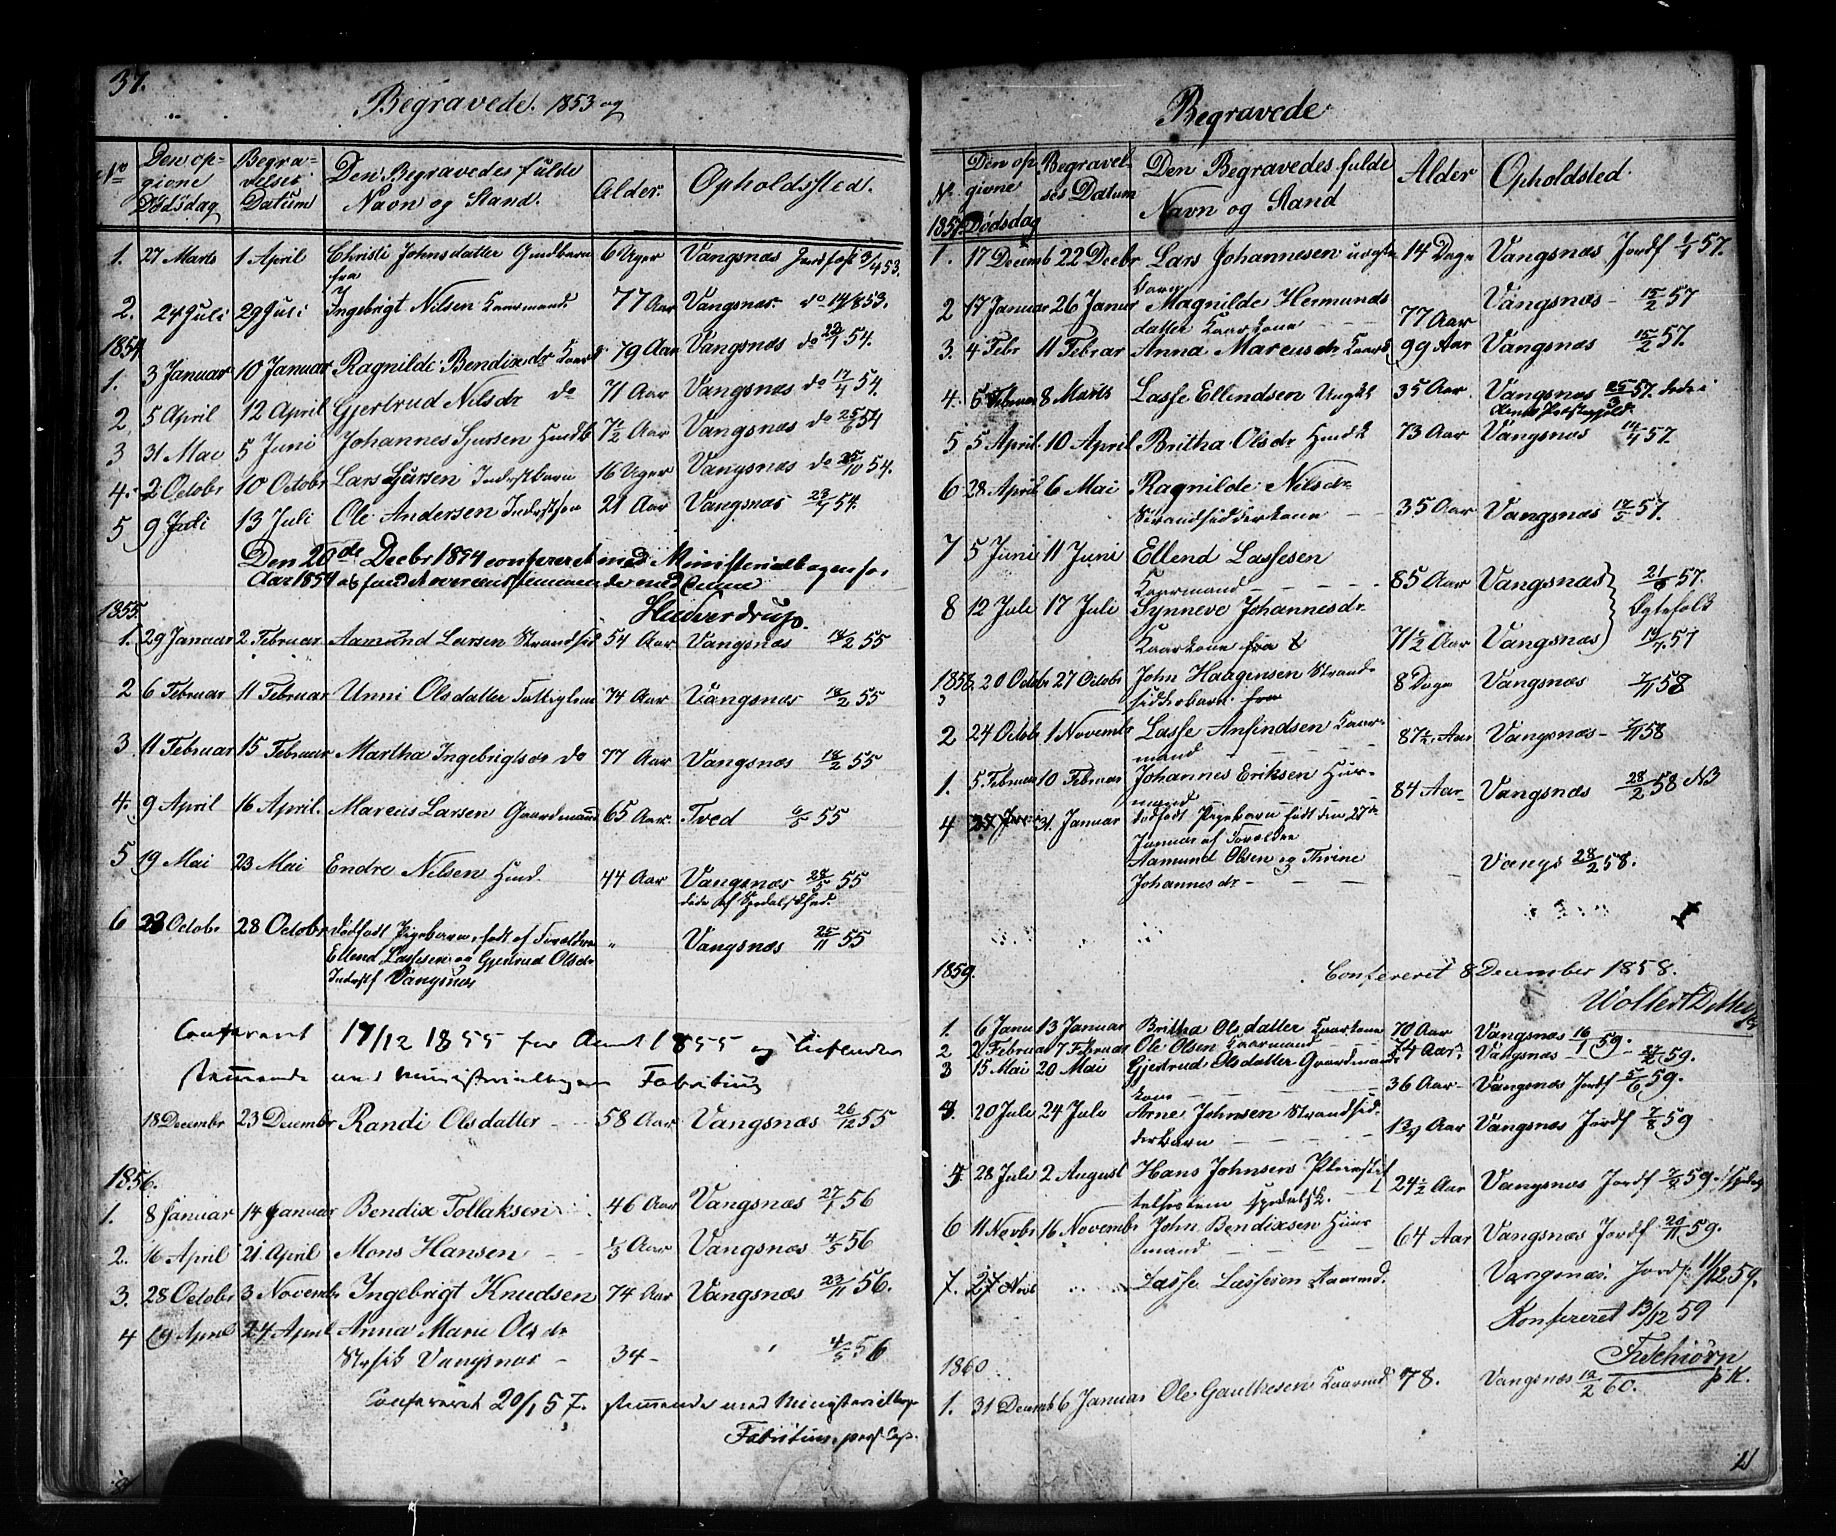 37.
Begravede. 1853 og
No
Den op-
givne
Dødsdag
Begra-
velses
Datum
Den Begravedes fulde
Navn og Stand.
Alder.
Opholdssted.
1. 27 Marts 1 April Christi Johnsdatter 6 Uger Vangsnæs Jordf 3/4 53.
2. 24 Juli 29 Juli Ingebrigt Nilsen Kaarmand 77 Aar Vangsnæs. do 14/8 53.
1854
1. 3 Januar 10 Januar Ragnilde Bendixdr Kaark 79 Aar Vangsnæs do 22/1 54.
2 5 April 12 April Gjertrud Nilsdr do 71 Aar Vangsnæs do 17/4 54.
3 31 Mai 5 Juni Johannes Sjursen Husdb 7½ Aar Vangsnæs do 25/6 54
4. 2 Octobr 10 Octobr Lars Sjursen Inderstbarn 16 Uger Vangsnæs do 25/10 54.
5 9 Juli 13 Juli Ole Andersen 21 Aar Vangsnæs 23/7 54.
Den 20de Decbr 1854 confereret med Ministerialbogen for
Aar 1854 og fundet overensstemmende med denne
1855.
1. 29 Januar 2 Februar Aamund Larsen Strandsid 54 Aar Vangsnæs 18/2 55
2 6 Februar 11 Februar Unni Olsdatter Fattiglem 74 Aar Vangsnæs 18/2 55
3 11 Februar 15 Februar Martha Ingebrigtsdr do 77 Aar Vangsnæs 18/2 55
4. 9 April 16 April. Marcus Larsen Gaardmand 65 Aar. Tved 6/5 55
5 19 Mai 23 Mai Endre Nilsen Husd. 44 Aar Vangsnæs 28/5 55
døde af Spedalskhed.
6 23 Octobr 28 Octobr dødfødt Pigebarn, født af Forældre " Vangsnæs 25/11 55
Ellend Lassesen og Gjertrud Olsdr
Inderstf Vangsnæs
Confereret 17/12 1855 for Aaret 1855 og befunden
stemmende med Ministerialbogen Fabritius
18 Decembr 23 Decembr Randi Olsdatter - - 58 Aar Vangsnæs 26/12 55
1856.
1. 8 Januar 14 Januar Bendix Tollaksen 46 Aar Vangsnæs 27/1 56
2. 16 April 21 April Mons Hansen - - ⅓ Aar Vangsnæs 4/5 56
3. 28 Octobr 3 Novembr Ingebrigt Knudsen 74 Aar Vangsnæs 23/11 56.
4 19 April 24 April Anna Marie Olsdr
Vangsnæs - 34- 4/5 56
Confereret 20/1 57. stemmende med Ministerialbog
Fabritius, pers Cap.
Begravede
No
Den op
givne
Dødsdag
Begravel-
ses Datum
Den Begravedes fulde
Navn og Stand
Alder
Opholdsted.
1857
1. 17 Decemb 22 Decbr Lars Johannesen 14 Dage Vangsnæs Jordf 1/1 57.
2 17 Januar 26 Januar Magnilde Hermunds
datter Kaarkone - - - 77 Aar Vangsnæs - 15/2 57
3. 4 Febr 11 Februar Anna Marcusdr Kaark 99 Aar Vangsnæs 15/2 57.
4. 6 Februar 8 Marts Lasse Ellendsen Ungkl 35 Aar Vangsnæs 25/3 57. døde i
Præstegjeld.
5 5 April 10 April Britha Olsdr Husdk 73 Aar Vangsnæs 14/4 57.
6 28 April 6 Mai Ragnilde Nilsdr
Strandsidderkone - - 35 Aar Vangsnæs 17/5 57.
7 5 Juni 11 Juni Ellend Lassesen
Kaarmand - - - - 85 Aar Vangsnæs 21/6 57.
Egtefolk
8 12 Juli 17 Juli Synneve Johannesdr
Kaarkone 71½ Aar Vangsnæs 19/7 57
1858. 20 Octobr 27 Octobr John Haagensen Strand-
sidderbarn 8 Dage Vangsnæs 7/11 58
2 24 Octob 1 Novembr Lasse Ansindsen Kaar-
mand - - - 87½ Aar Vangsnæs - 7/11 58
1. 5 Februar 10 Februar Johannes Eriksen Huus-
mand 84 Aar - Vangsnæs 28/2 58 NB
4 27 31. Januar dødfødt Pigebarn født den 27de
Januar af Forældre
Aamund Olsen og Thrine
Johannesdr - - - Vangs 28/2 58.
1859. Confereret 8 December 1858.
1. 6 Janu 13 Januar Britha Olsdatter Kaarkone 70 Aar Vangsnæs 16/1 59.
2 2 Februar 7 Februar Ole Olsen Kaarmand - - 74 Aar. Vangsnæs - 27/2 59.
3 15 Mai 20 Mai Gjertrud Olsdatter Gaardmands
kone - - - 36 Aar - Vangsnæs Jordf 5/6 59.
4. 20 Juli 24 Juli Arne Johnsen Strandsid-
derbarn - - - 1¾ Aar Vangsnæs Jordf 7/8 59
5. 28 Juli 2 August Hans Johnsen
spedalsk. - - 24½ Aar Vangsnæs Jordf 7/8 59.
6 11 Novbr 16 Novembr John Bendixsen Huus
mand - - - 64 Aar Vangsnæs Jordf 20/11 59.
7. 27 Novb Lasse Lassesen Kaarmd. Vangsnæs. Jordf. 11/12 59.
Konfereret 13/12 59
1860
1. 31 Decemb 6 Januar Ole Gauthesen Kaarmd 78. Vangsnæs 12/2 60.